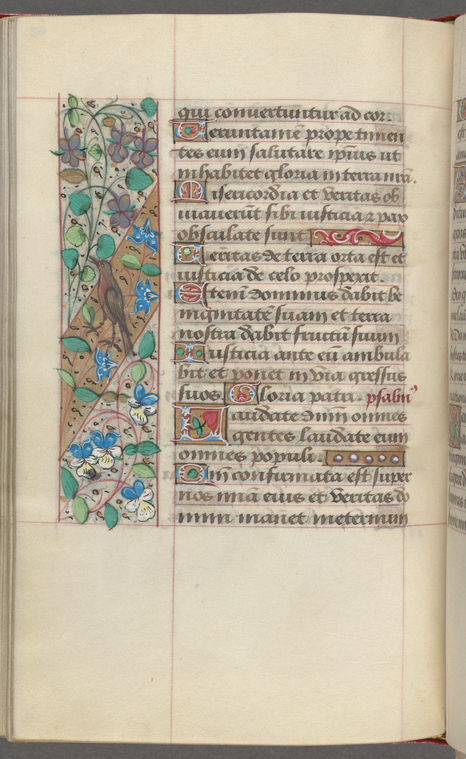 qui conuertuntur ad cor.
Veruntamē prope timen
tes eum salutare ipsius ut
inhabitet gloria in terra nrā.
Misericordia et veritas ob
uiauerūt sibi iusticia ⁊ pax
obsculate sunt
Veritas de terra orta est et
iusticia de celo prospexit.
Etenī dominus dabit be
nignitatē suam et terra
nostra dabit fructū suum
Iusticia ante eū ambula
bit et ponet in via gressus
suos. Gloria patri. psalm⁹
Laudate dnm omnes
gentes laudate eum
omnes populi.
Qm̄ confirmata est super
nos mīa eius et veritas do
mini manet ineternum